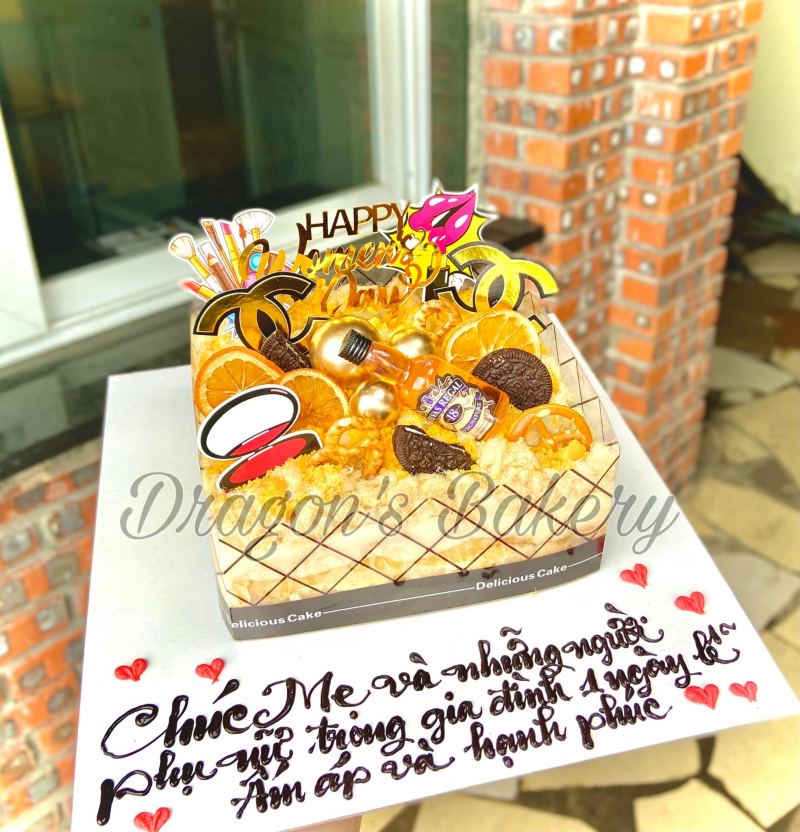 HAPPY
Women's
Day
CHIVAS REGAL
18
Dragon's Bakery
Delicious Cake
elicious Cake
Chúc Mẹ và những người
phụ nữ trong gia đình 1 ngày lễ
Ấm áp và hạnh phúc